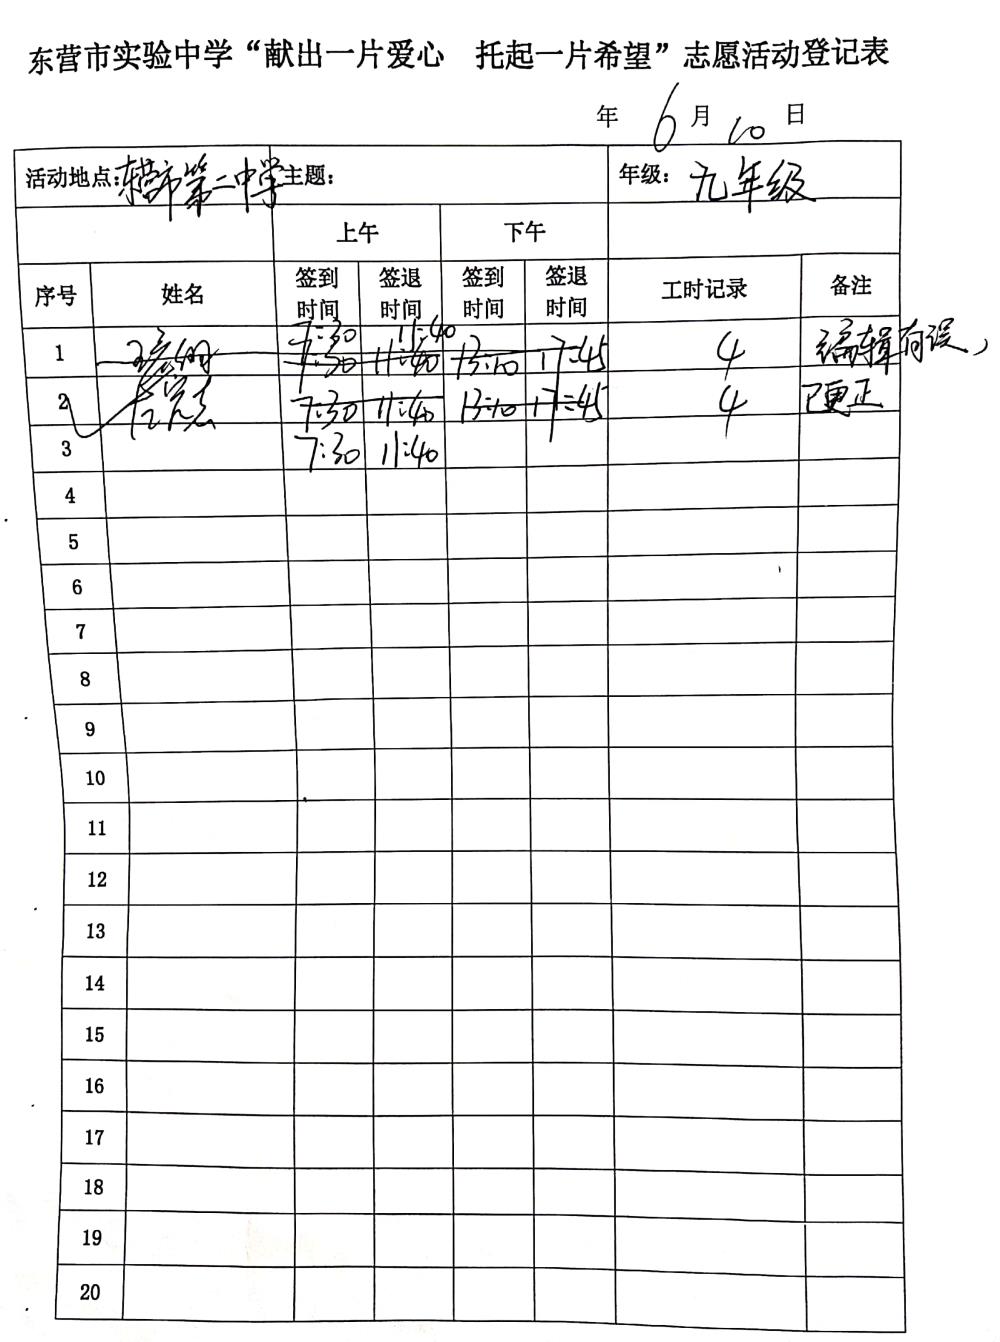 东营市实验中学“献出一片爱心 托起一片希望”志愿活动登记表
年 6 月 10 日
活动地点:东营市第二中学 主题: 年级: 九年级
上午 下午
序号 姓名 签到时间 签退时间 签到时间 签退时间 工时记录 备注
7:30 11:40
1 7:30 11:40 13:10 17:45 4 编辑有误,
2 7:30 11:40 13:10 17:45 4 已更正
3 7:30 11:40
4
5
6
7
8
9
10
11
12
13
14
15
16
17
18
19
20